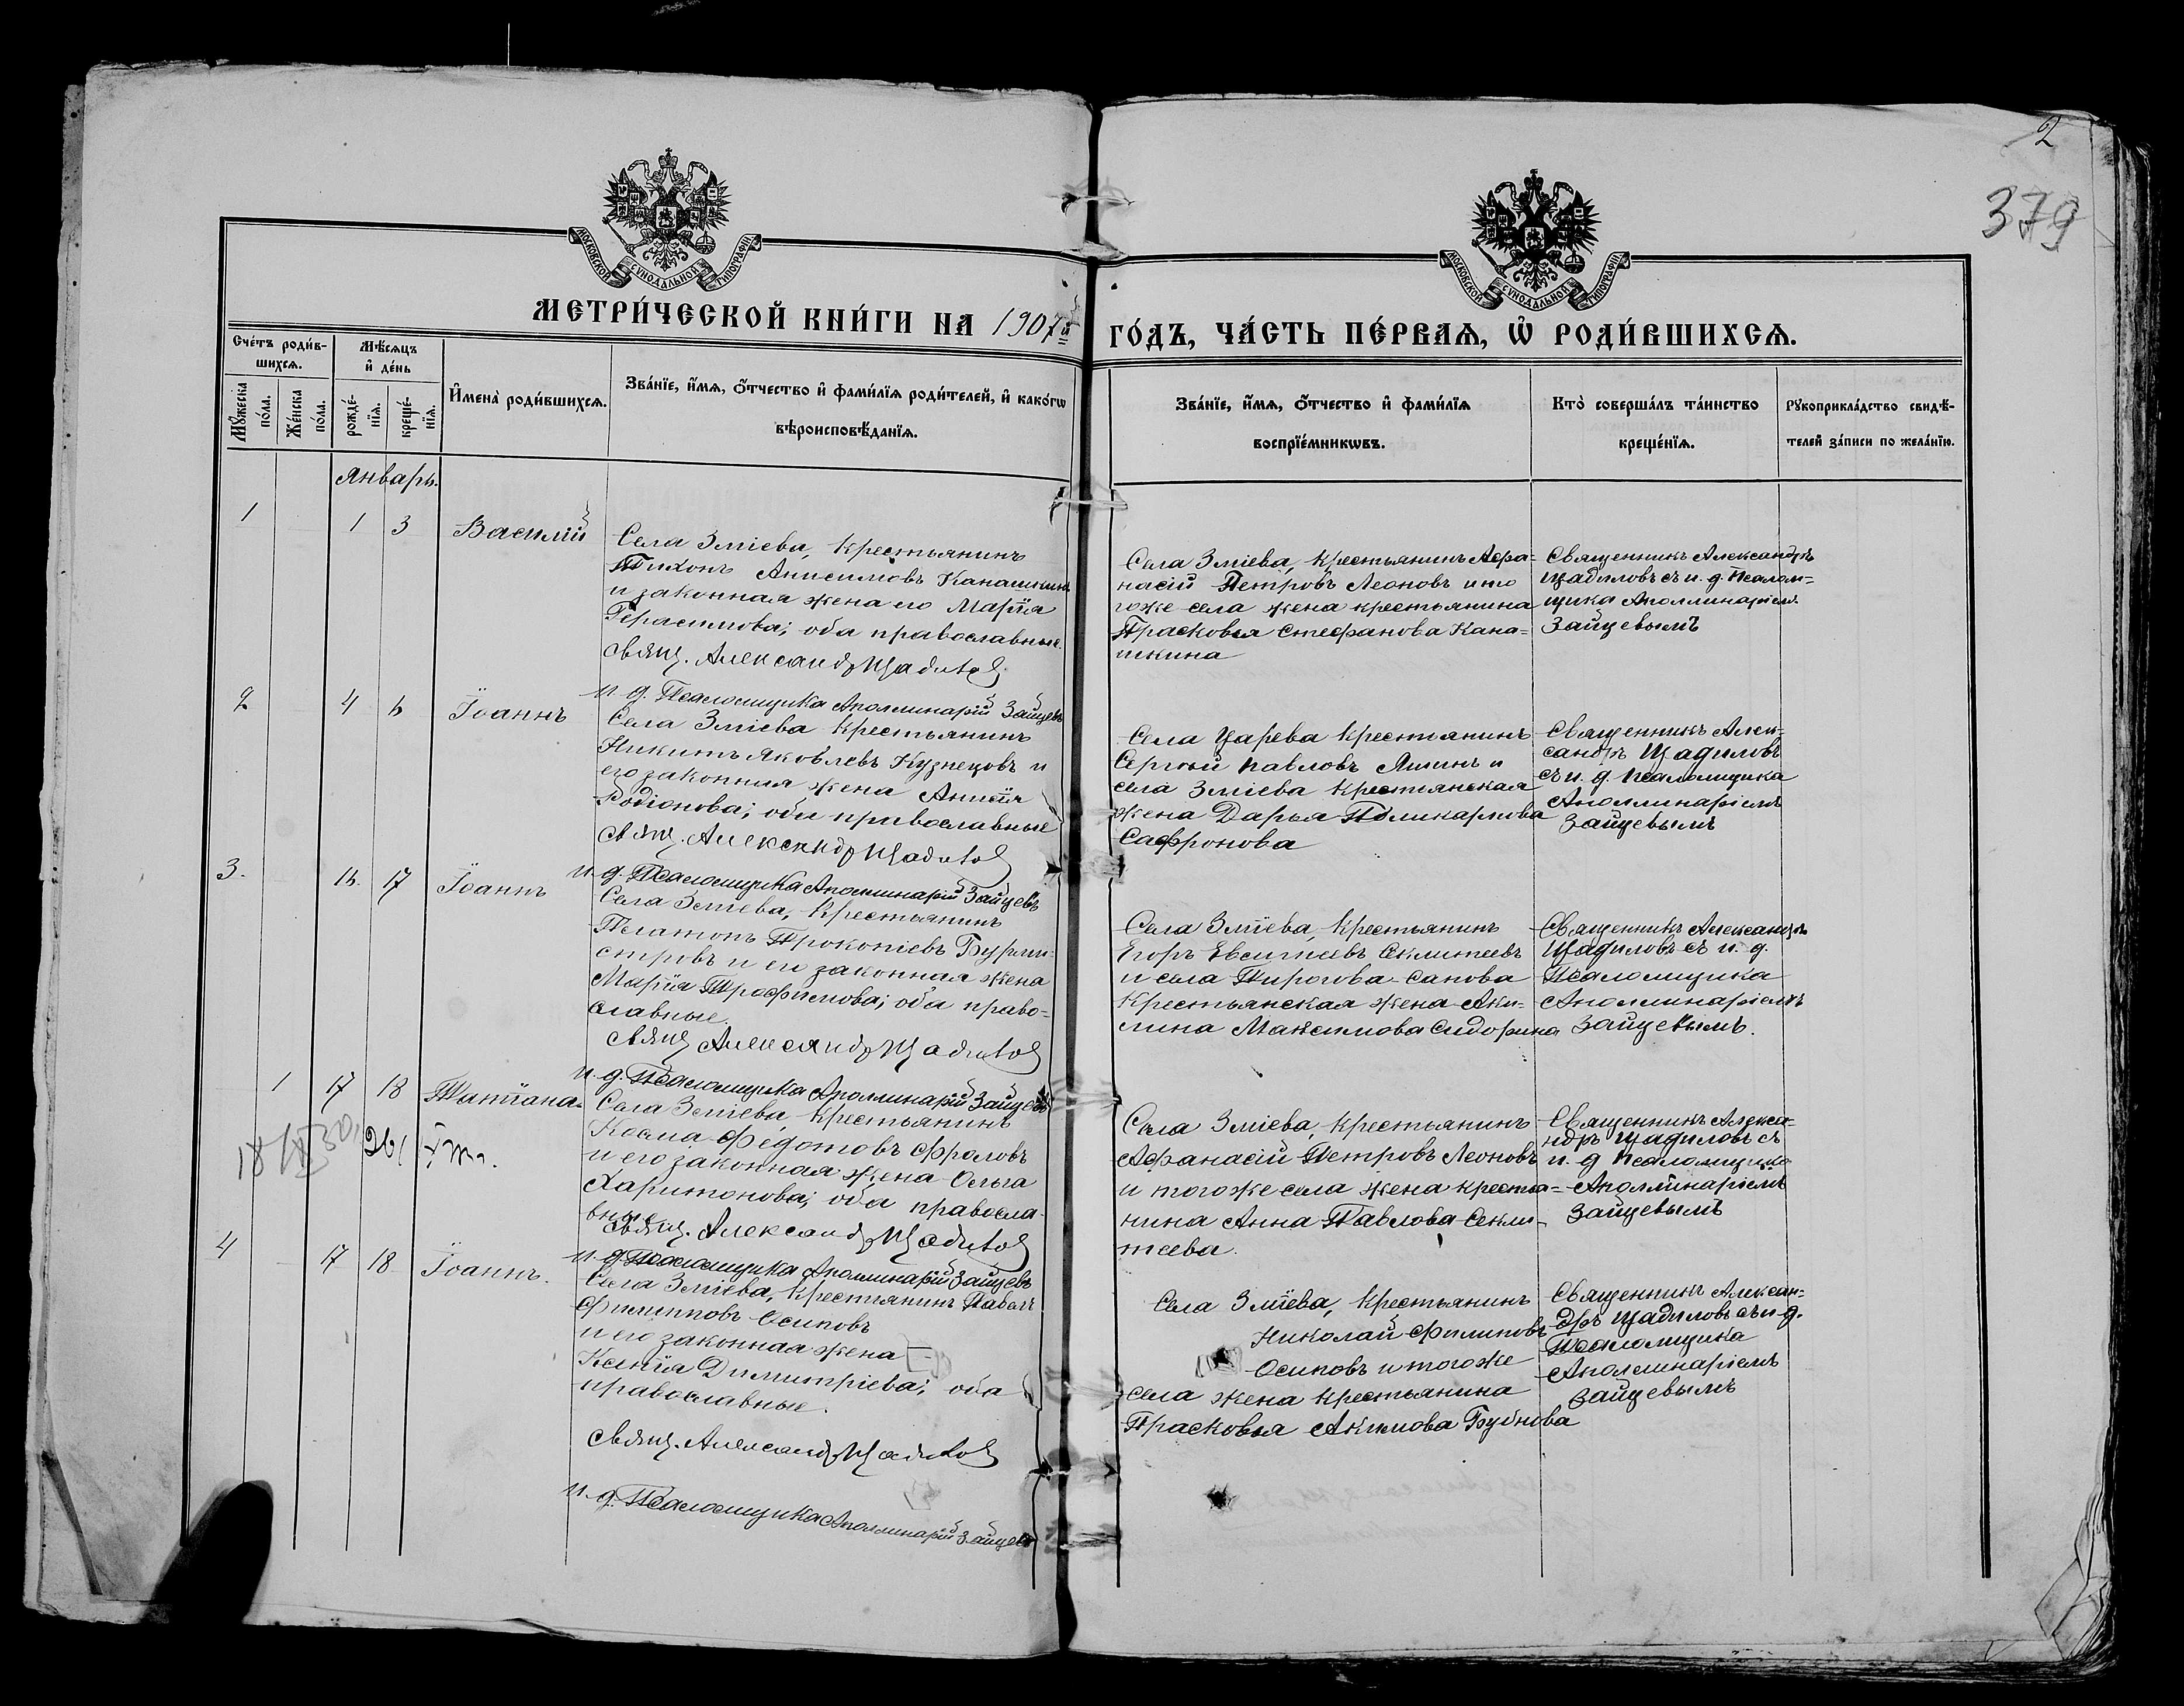 2
379
МОСКОВСКОЙ СѴНОДАЛЬНОЙ ТИПОГРАФІИ
МОСКОВСКОЙ СѴНОДАЛЬНОЙ ТИПОГРАФІИ
МЕТРИ́ЧЕСКОЙ КНИ́ГИ НА 1907й
ГО́ДЪ, ЧА́СТЬ ПЕ́РВАѦ, Ѿ РОДИ́ВШИХСѦ.
Сче́тъ роди́в-
шихсѧ.
Мꙋ́жеска
по́ла.
Же́нска
по́ла.
Мѣ́сѧцъ
и҆ де́нь
рожде́-
нїѧ.
креще́-
нїѧ.
И҆мена̀ роди́вшихсѧ.
Зва́нїе, и҆́мѧ, ѻ҆́тчество и҆ фами́лїѧ роди́телей, и҆ како́гѡ
вѣроисповѣ́данїѧ.
Зва́нїе, и҆́мѧ, ѻ҆́тчество и҆ фами́лїѧ
воспрїе́мникѡвъ.
Кто̀ соверша́лъ та́инство
креще́нїѧ.
Рꙋкоприкла́дство свидѣ́-
телей за́писи по жела́нїю.
Январь.
1 1 3 Василій
Села Зміева, крестьянинъ
Тихонъ Анисимовъ Канашкинъ
и законная жена его Марія
Герасимова; оба православные.
Свящ. Александръ Щадиловъ
и. д. Псаломщика Аполлинарій Зайцевъ
Села Зміева, крестьянинъ Афа-
насій Петровъ Леоновъ и то
гоже села жена крестьянина
Прасковья Стефанова Кана-
шкина
Священникъ Александръ
Щадиловъ съ и. д. Псалом-
щика Аполлинаріемъ
Зайцевымъ
2 4 6 Іоаннъ
Села Зміева крестьянинъ
Никита Яковлевъ Кузнецовъ и
его законная жена Анисія
Родіонова; оба православные
Свящ. Александръ Щадиловъ
и. д. Псаломщика Аполлинарій Зайцевъ
Села Царева крестьянинъ
Сергѣй Павловъ Яшинъ и
села Зміева крестьянская
жена Дарья Поликарпова
Сафронова
Священникъ Алек-
сандръ Щадиловъ
съ и. д. псаломщика
Аполлинаріемъ
Зайцевымъ
3. 16. 17 Іоаннъ
Села Зміева, крестьянинъ
Платонъ Прокопіевъ Бурми-
стровъ и его законная жена
Марія Трофимова; оба право-
славные.
Свящ. Александръ Щадиловъ
и. д. Псаломщика Аполлинарій Зайцевъ
Села Зміева, крестьянинъ
Егоръ Евсигнеевъ Секлитеевъ
и села Пирогова-Санова
крестьянская жена Аки-
лина Максимова Сидорина
Священникъ Александръ
Щадиловъ съ и. д.
Псаломщика
Аполлинаріемъ
Зайцевымъ.
1 17 18 Татіана.
Села Зміева, крестьянинъ
Косма Федотовъ Фроловъ
и его законная жена Ольга
Харитонова; оба правосла-
вные
Свящ. Александръ Щадиловъ
и. д. Псаломщика Аполлинарій Зайцевъ
Села Зміева, крестьянинъ
Афанасій Петровъ Леоновъ
и тогоже села жена крестья-
нина Анна Павлова Секли-
теева.
Священникъ Алекса-
ндръ Щадиловъ съ
и. д. псаломщика
Аполлинаріемъ
Зайцевымъ
4 17 18 Іоаннъ.
Села Зміева, крестьянинъ Павелъ
Филипповъ Осиповъ
и его законная жена
Ксенія Димитріева; оба
православные.
Свящ. Александръ Щадиловъ
и. д. Псаломщика Аполлинарій Зайцевъ
Села Зміева, крестьянинъ
Николай Филиповъ
Осиповъ и тогоже
села жена крестьянина
Прасковья Акимова Бубнова
Священникъ Алексан-
дръ Щадиловъ съ и. д.
Псаломщика
Аполлинаріемъ
Зайцевымъ